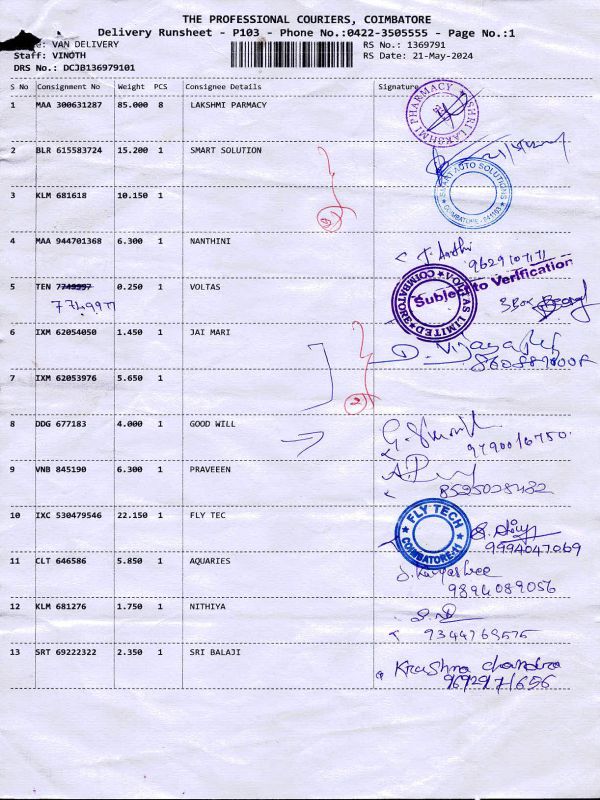 THE PROFESSIONAL COURIERS, COIMBATORE
Delivery Runsheet - P103 - Phone No.:0422-3505555 - Page No.:1
VAN DELIVERY RS No.: 1369791
Staff: VINOTH RS Date: 21-May-2024
DRS No.: DCJB136979101
S No Consignment No Weight PCS Consignee Details Signature
1 MAA 300631287 85.000 8 LAKSHMI PARMACY
SHRI LAKSHMI PHARMACY
2 BLR 615583724 15.200 1 SMART SOLUTION
SMART AUTO SOLUTIONS
COIMBATORE
3 KLM 681618 10.150 1
3
4 MAA 944701368 6.300 1 NANTHINI
9629107171
5 TEN 7749997 0.250 1 VOLTAS
7749977
VOLTAS LIMITED COIMBATORE
Subject to Verification
3 Box
6 IXM 62054050 1.450 1 JAI MARI
7 IXM 62053976 5.650 1
2
8 DDG 677183 4.000 1 GOOD WILL
9790016750
9 VNB 845190 6.300 1 PRAVEEEN
8525028482
10 IXC 530479546 22.150 1 FLY TEC
FLY TECH
COIMBATORE-11
9994047069
11 CLT 646586 5.850 1 AQUARIES
9894089056
12 KLM 681276 1.750 1 NITHIYA
9344769575
13 SRT 69222322 2.350 1 SRI BALAJI
Krushna chandra
9692971656